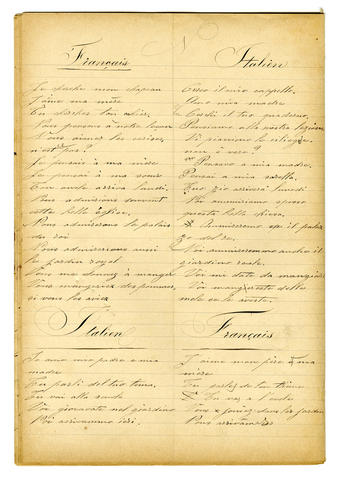 Français
Je cherche mon chapeau
J'aime ma mère
Tu cherches ton cahier.
Nous pensons à notre leçon
Vous aimez les cerises,
n'est pas?
Je pensais à ma mère
Je pensai à ma sœur
Ton oncle arriva lundi.
Vous admirerez souvent
cette belle église.
Nous admirerons le palais
du roi
Nous admirerions aussi
le jardin royal
Vous me donnez à manger
Vous mangeriez des pommes,
si vous les aviez
Italien
Cerco il mio cappello.
Amo mia madre
Cerchi il tuo quaderno.
Pensiamo alla nostra lezione
Voi amate le ciliegie,
non è vero?
Pensavo a mia madre.
Pensai a mia sorella.
Tuo zio arriverà lunedì
Voi ammirerete spesso
questa bella chiesa.
Ammireremo il palaz
zo del re.
Noi ammireremmo anche il
giardino reale.
Voi mi date da mangiare
Voi mangereste delle
mele se le aveste.
Italien
Io amo mio padre e mia
madre
Tu parli del tuo tema.
Tu vai alla scuola
Voi giocavate nel giardino
Noi arrivammo ieri.
Français
J'aime mon père et ma
mère
Tu parles de ton thème
Tu vas à l'école
Vous jouiez dans le jardin
Nous arrivâmes